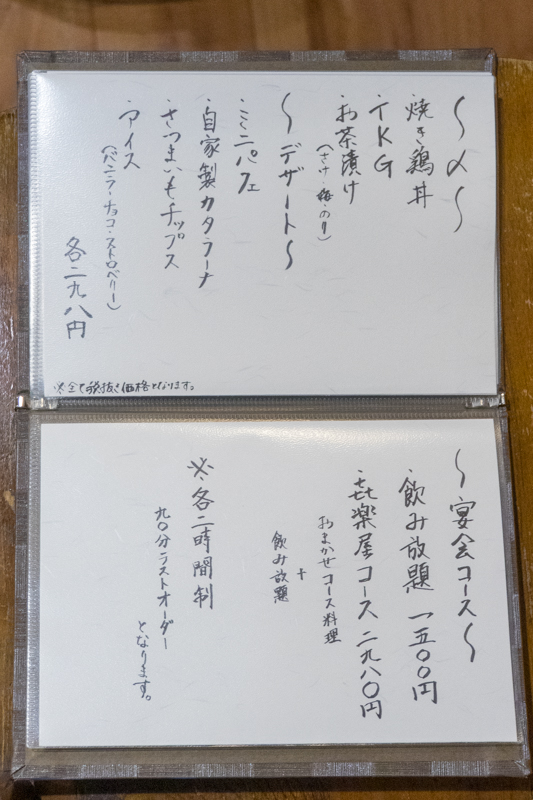 ～〆～
・焼き鶏丼
・TKG
・お茶漬け
（さけ・梅・のり）
～デザート～
・ミニパフェ
・自家製カタラーナ
・さつまいもチップス
・アイス
（バニラ・チョコ・ストロベリー）
各二九八円
※全て税抜き価格となります。
～宴会コース～
・飲み放題 一五〇〇円
・㐂楽屋コース 二九八〇円
おまかせコース料理
+
飲み放題
※各二時間制
九〇分ラストオーダー
となります。